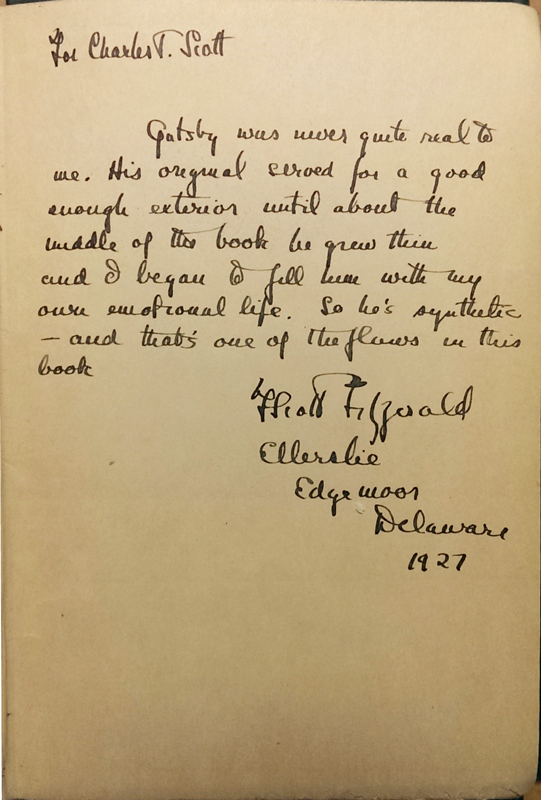 For Charles T. Scott
Gatsby was never quite real to
me. His original served for a good
enough exterior until about the
middle of the book he grew thin
and I began to fill him with my
own emotional life. So he's synthetic
— and that's one of the flaws in this
book
F Scott Fitzgerald
Ellerslie
Edgemoor
Delaware
1927